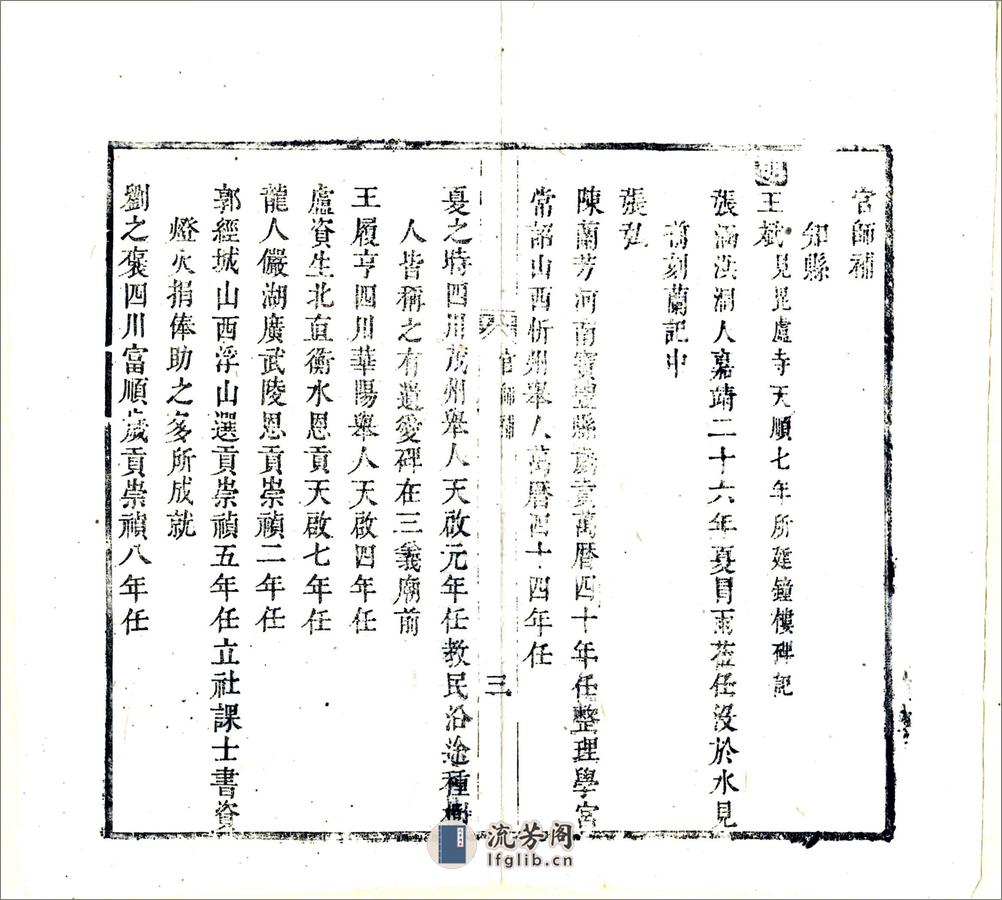 官師補
知縣
明
王斌見毘盧寺天順七年所建鐘樓碑記
張涵洪洞人嘉靖二十六年夏冒雨蒞任沒於水見
舊刻蘭記中
張弘
陳蘭芳河南寶豐縣歲貢萬曆四十年任整理學宮
常詔山西忻州舉人萬曆四十四年任
官師補
三
夏之時四川茂州舉人天啟元年任教民沿途種樹
人皆稱之有遺愛碑在三義廟前
王履亨四川華陽舉人天啟四年任
盧資生北直衡水恩貢天啟七年任
龍人儼湖廣武陵恩貢崇禎二年任
郭經城山西浮山選貢崇禎五年任立社課士書資
燈火捐俸助之多所成就
劉之褒四川富順歲貢崇禎八年任
流芳阁
lfglib.cn